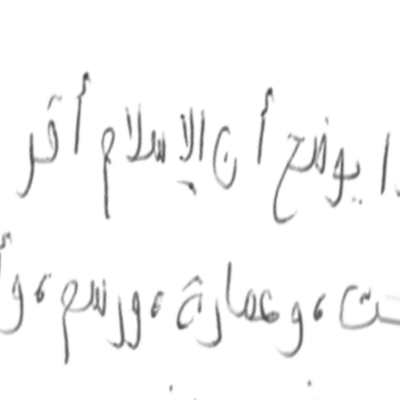 يوضح أن الإسلام أقر
، وعمارة، ورسم، و